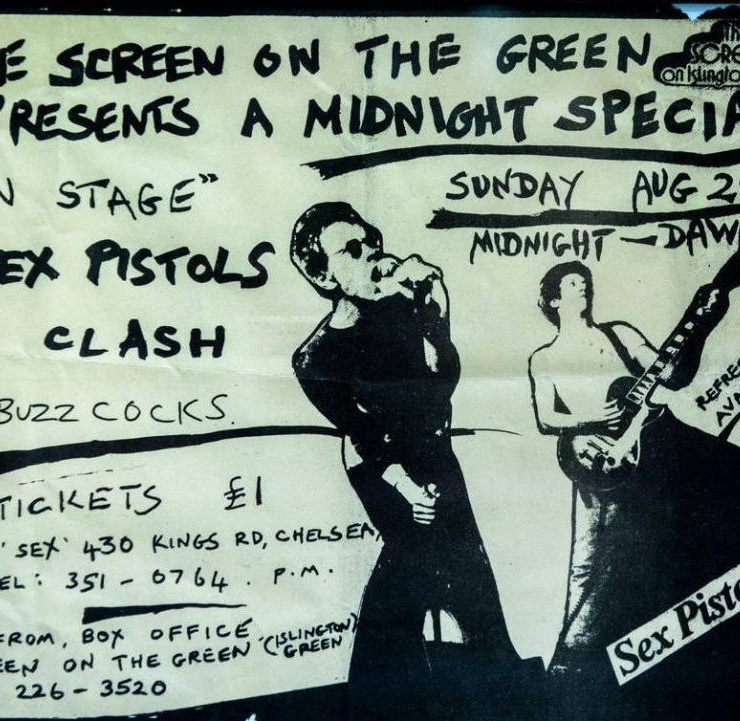 E SCREEN ON THE GREEN
RESENTS A MIDNIGHT SPECIA
N STAGE”
SUNDAY AUG 2
MIDNIGHT — DAW
EX PISTOLS
CLASH
BUZZCOCKS.
TICKETS £1
'SEX' 430 KINGS RD, CHELSEA,
EL: 351-0764. P.M.
FROM, BOX OFFICE
EEN ON THE GREEN (ISLINGTON GREEN)
226-3520
The
SCRE
on Islingto
REFRES
AVA
Sex Pisto